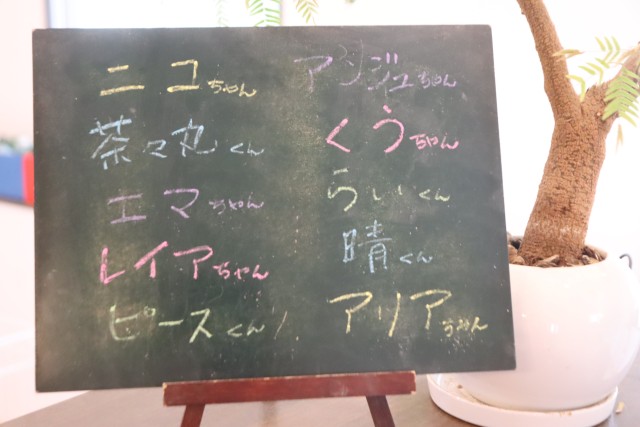 ニコちゃん
茶々丸くん
エマちゃん
レイアちゃん
ピースくん
アンジュちゃん
くうちゃん
らいくん
晴くん
アリアちゃん